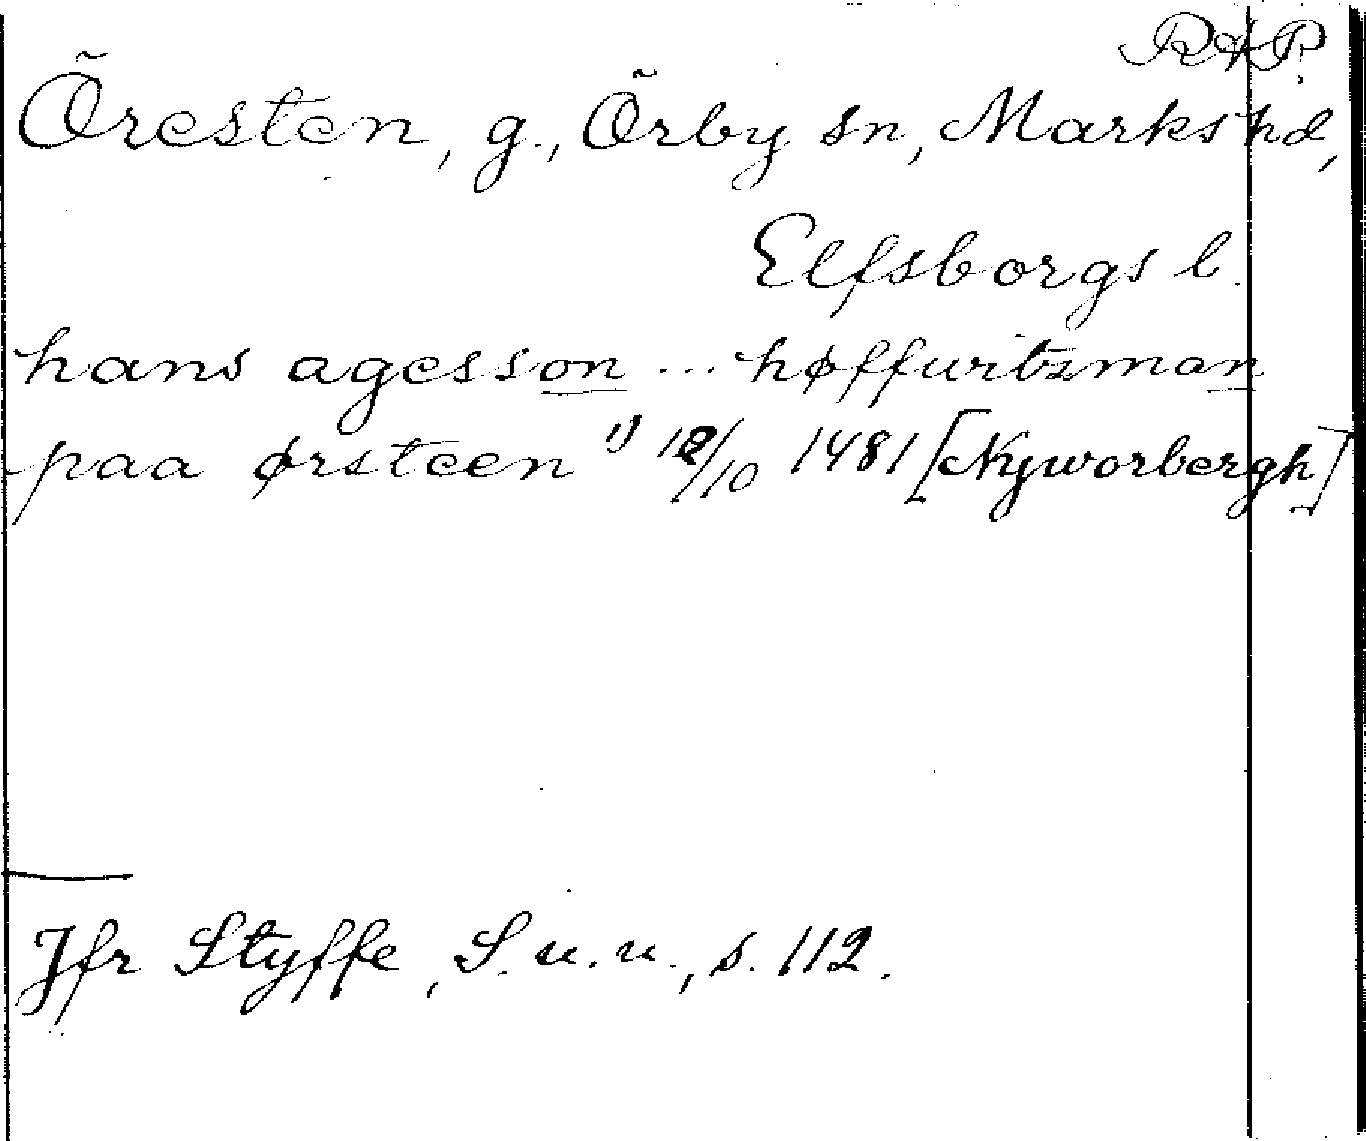 RAP.
Õresten, g., Õrby sn, Marks hd,
Elfsborgs l.
hans agesson ... høffuitzman
paa ørsteen ¹⁾ 12/10 1481 [Nyworbergh]
Jfr Styffe, S. u. u., s. 112.